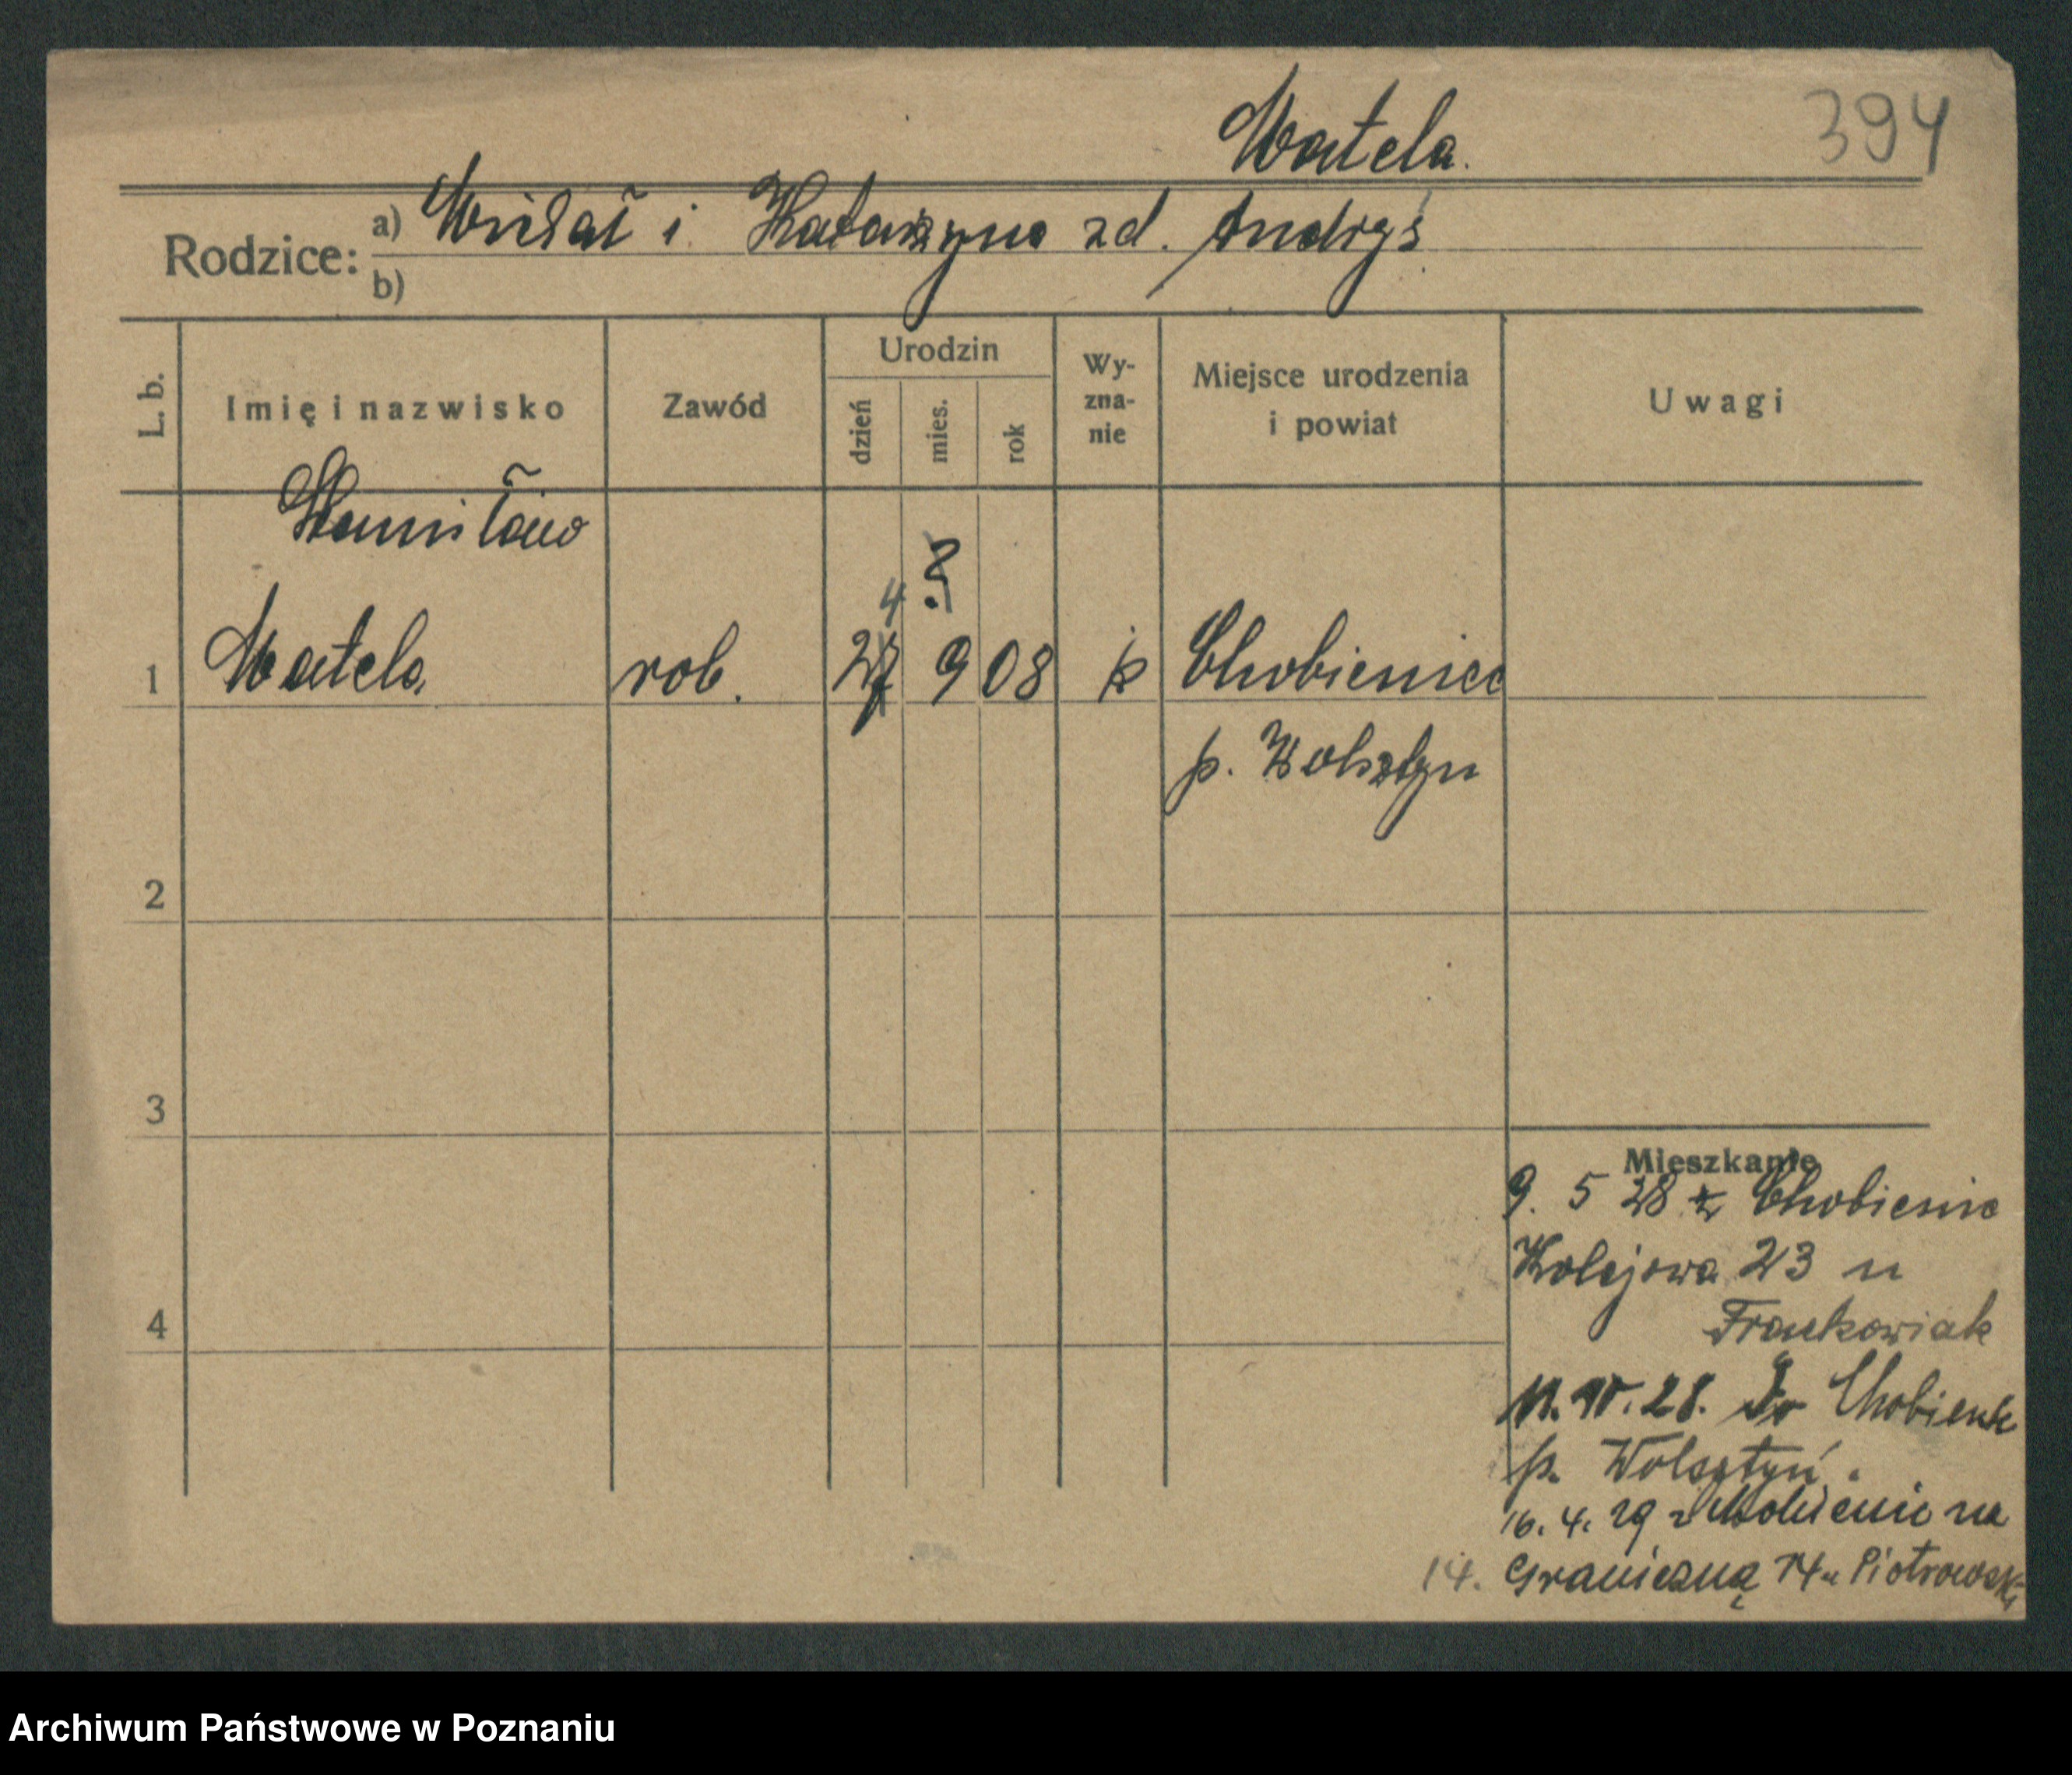 394
Watela.
Rodzice: a) Michał i Katarzyna zd. Andryś
b)
L. b. Imię i nazwisko Zawód Urodzin dzień mies. rok Wy-zna-nie Miejsce urodzenia i powiat Uwagi
Stanisław
4 8
1 Watela rob. 27 9 08 k Chobienice
p. Wolsztyn
2
3
4
Mieszkanie
9. 5 28 z Chobienic
Kolejowa 23 u
Frankowiak
28. Do Chobienic
p. Wolsztyń.
16. 4. 29 z Chobienic na
14. Graniczną 14 u Piotrowski
Archiwum Państwowe w Poznaniu